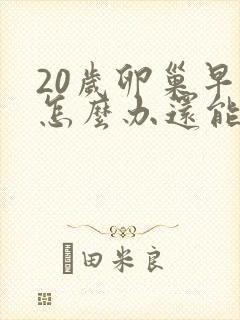 20歲卵巢早
怎麼办還能
田米良